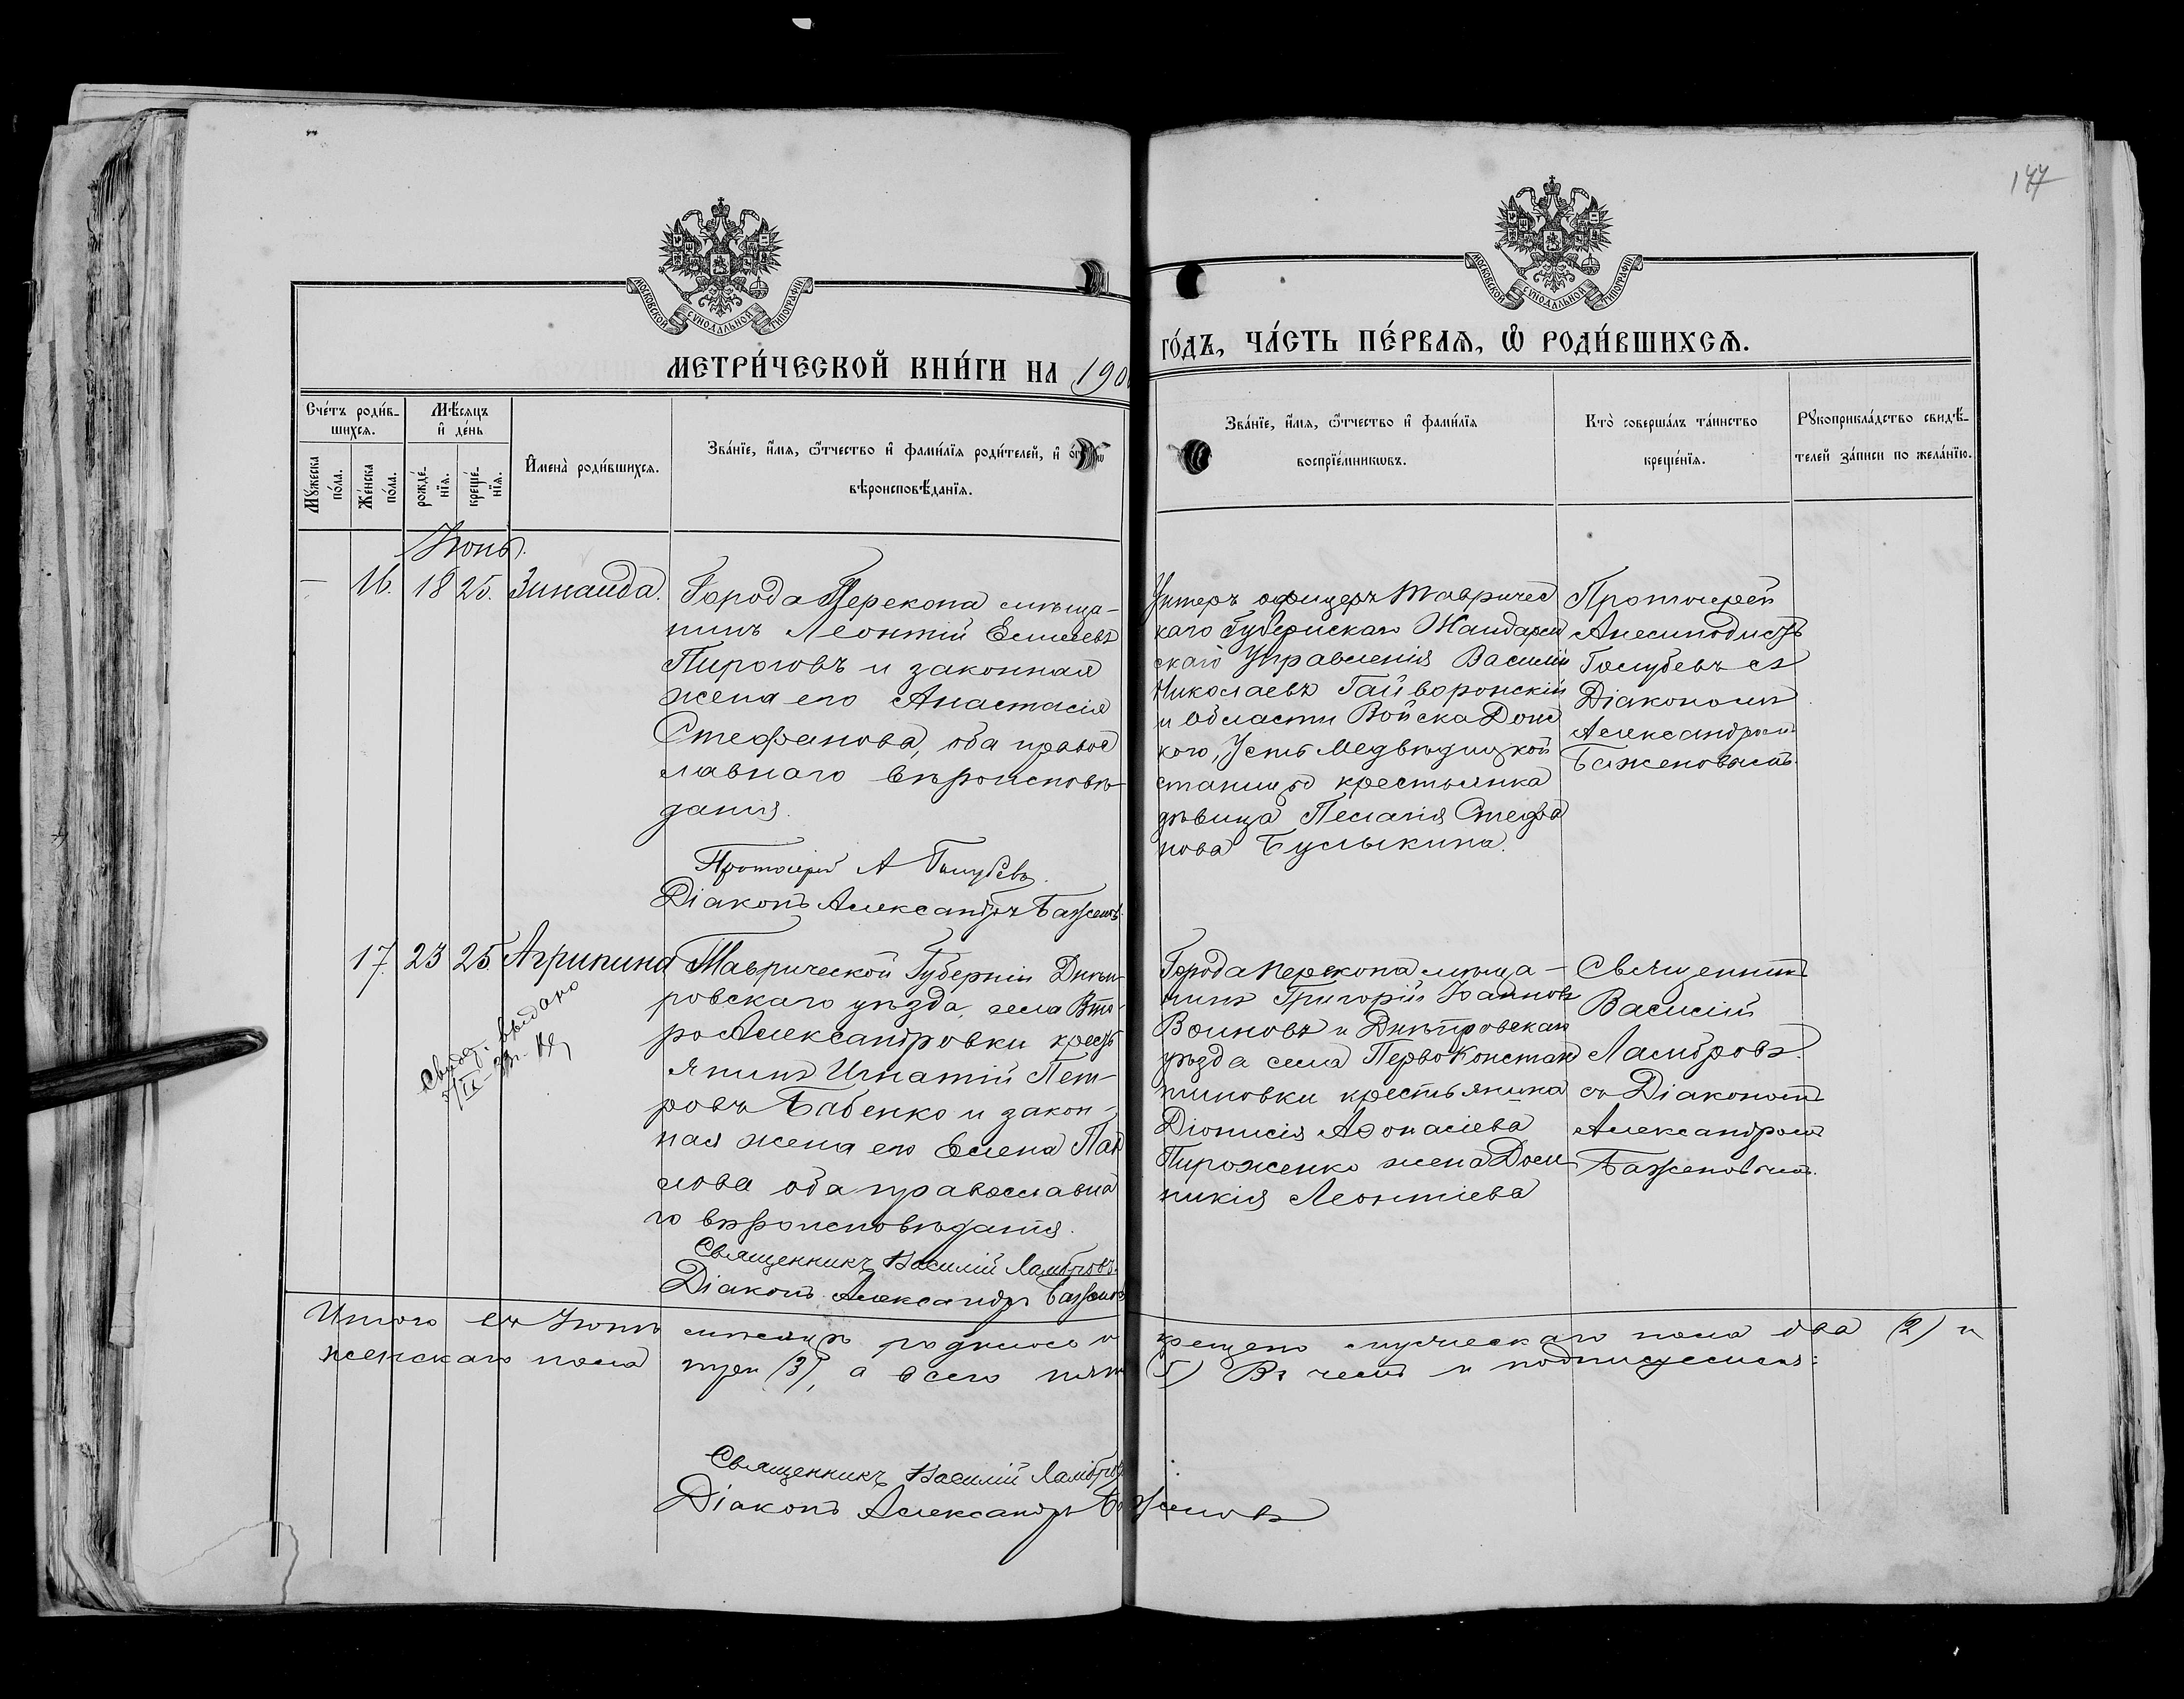 177
МОСКОВСКОЙ СѴНОДАЛЬНОЙ ТИПОГРАФІИ
МОСКОВСКОЙ СѴНОДАЛЬНОЙ ТИПОГРАФІИ
МЕТРИ́ЧЕСКОЙ КНИ́ГИ НА 190
ГО́ДЪ, ЧА́СТЬ ПЕ́РВАѦ, Ѿ РОДИ́ВШИХСѦ.
Сче́тъ роди́в-
шихсѧ.
Мꙋжеска
по́ла.
Же́нска
по́ла.
Мѣ́сѧцъ
и҆ де́нь
рожде́-
нїѧ.
креще́-
нїѧ.
И҆мена̀ роди́вшихсѧ.
Зва́нїе, и҆́мѧ, ѻ҆́тчество и҆ фами́лїѧ роди́телей, и҆
вѣроисповѣ́данїѧ.
Зва́нїе, и҆́мѧ, ѻ҆́тчество и҆ фами́лїѧ
воспрїе́мникѡвъ.
Кто̀ соверша́лъ та́инство
креще́нїѧ.
Рꙋкоприкла́дство свидѣ́-
телей за́писи по жела́нїю.
Іюнь.
— 16. 18 25. Зинаида.
Города Перекопа мѣща-
нинъ Леонтій Елисеевъ
Пироговъ и законная
жена его Анастасія
Стефанова, оба правос
лавнаго вѣроисповѣ-
данія.
Протоіерей А Голубевъ.
Діаконъ Александръ Баженовъ.
Унтеръ офицеръ Тавричес
каго Губернскаго Жандарм
скаго Управленія Василій
Николаевъ Гайворонскій
и Области Войска Донс
кого, Усть Медвѣдицкой
станицы крестьянка
дѣвица Пелагія Стефа
нова Булыкина.
Протоіерей
Анемподистъ
Голубевъ съ
Діакономъ
Александромъ
Баженовымъ.
17. 23 25. Агрипина
Свидѣт. выдано
Таврической Губерніи Днѣп-
ровскаго уѣзда, села Вто-
роАлександровки кресть
янинъ Игнатій Пет-
ровъ Бабенко и закон-
ная жена его Елена Пав
лова оба православна
го вѣроисповѣданія.
Священникъ Василій Ламбровъ.
Діаконъ Александръ Баженовъ
Города Перекопа мѣща-
нинъ Григорій Іоанновъ
Воиновъ и Днѣпровскаго
уѣзда села ПервоКонстан
тиновки крестьянина
Діонисія Аѳонасіева
Пироженко жена Дом
никія Леонтіева
Священникъ
Василій
Ламбровъ.
съ Діакономъ
Александромъ
Баженовымъ.
Итого въ Іюнѣ мѣсяцѣ родилось и крещено мужескаго пола два (2) и
женскаго пола три (3), а всего пять (5) Въ чемъ и подписуемся:
Священникъ Василій Ламбровъ
Діаконъ Александръ Баженовъ